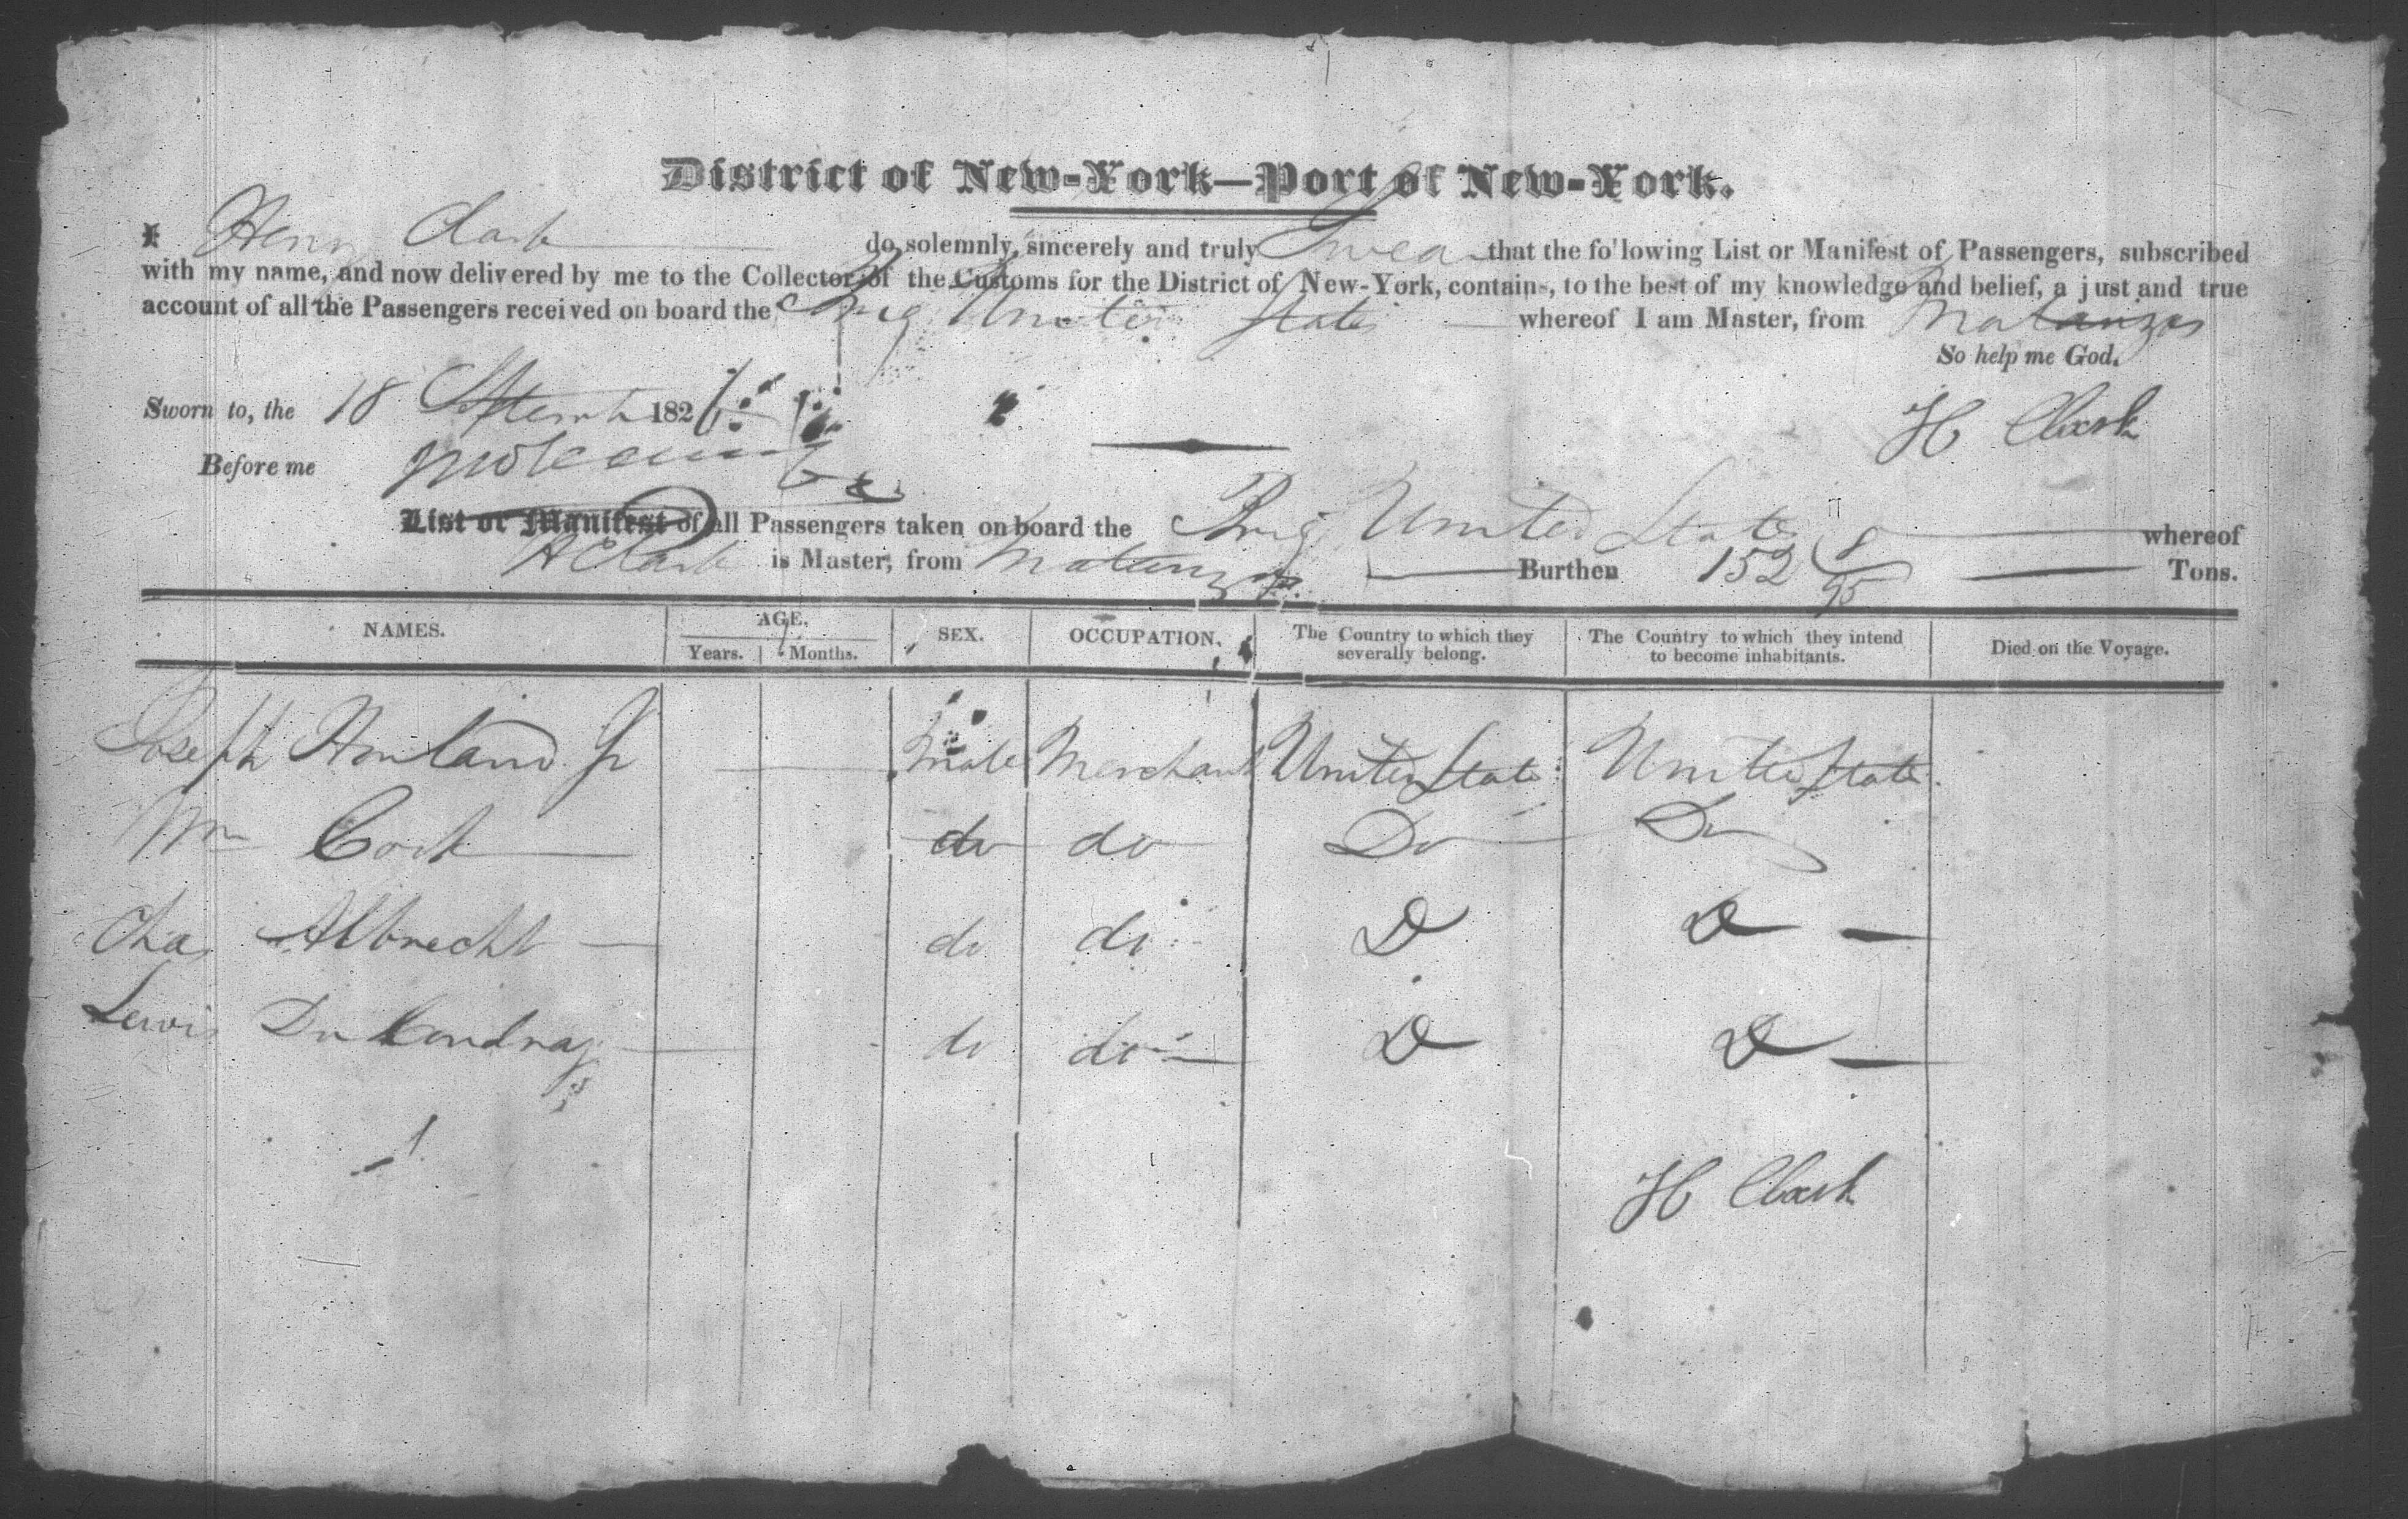 District of New-York—Port of New-York.
I Henry Clark do solemnly, sincerely and truly Swear that the following List or Manifest of Passengers, subscribed
with my name, and now delivered by me to the Collector of the Customs for the District of New-York, contains, to the best of my knowledge and belief, a just and true
account of all the Passengers received on board the Brig United States whereof I am Master, from Matanzas
So help me God.
Sworn to, the 18 Septemb 182 H Clark
Before me
List or Manifest of all Passengers taken on board the Brig United States whereof
H Clark is Master, from Matanzas Burthen 152 8/95 Tons.
NAMES. AGE. SEX. OCCUPATION. The Country to which they severally belong. The Country to which they intend to become inhabitants. Died on the Voyage.
Years. Months.
Joseph Howland Jr Male Merchant United States United States
Wm Cook do do Do Do
Chas Albrecht do do Do Do
Lewis do do Do Do
H Clark